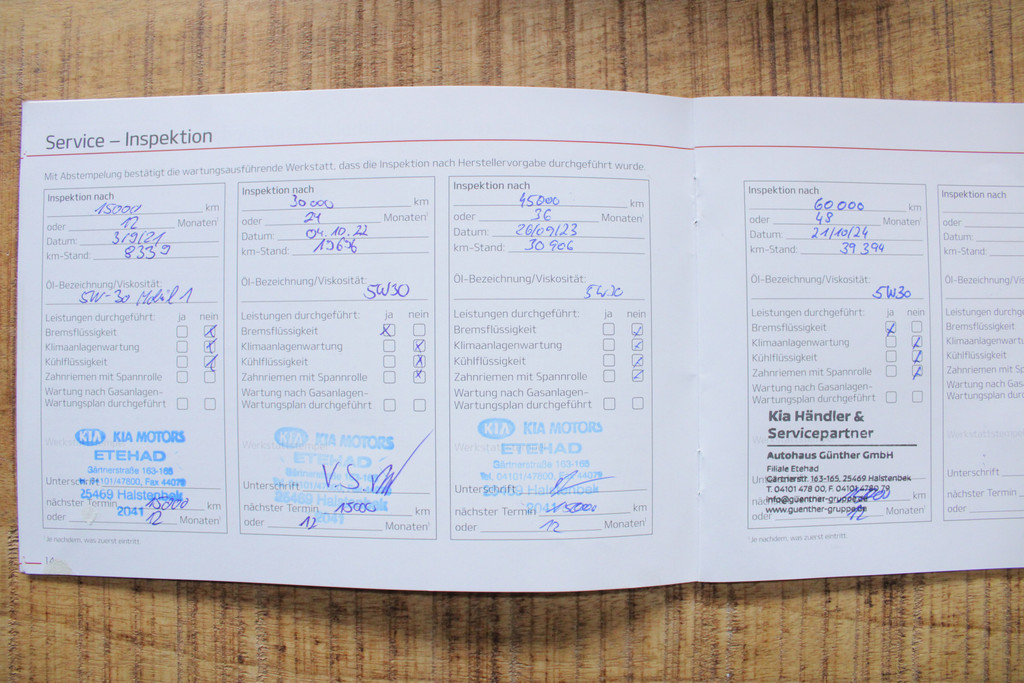 Service – Inspektion
Mit Abstempelung bestätigt die wartungsausführende Werkstatt, dass die Inspektion nach Herstellervorgabe durchgeführt wurde.
Inspektion nach
15000 km
oder 12 Monaten¹
Datum: 3/9/21
km-Stand: 8339
Öl-Bezeichnung/Viskosität:
5W-30 Mobil 1
Leistungen durchgeführt: ja nein
Bremsflüssigkeit
Klimaanlagenwartung
Kühlflüssigkeit
Zahnriemen mit Spannrolle
Wartung nach Gasanlagen-
Wartungsplan durchgeführt
KIA KIA MOTORS
ETEHAD
Gärtnerstraße 163-165
Tel. 04101/47800, Fax 44079
25469 Halstenbek
2041
Unterschrift
nächster Termin 15000 km
oder 12 Monaten¹
¹ Je nachdem, was zuerst eintritt.
Inspektion nach
30 000 km
oder 24 Monaten¹
Datum: 04.10.22
km-Stand: 19696
Öl-Bezeichnung/Viskosität:
5W30
Leistungen durchgeführt: ja nein
Bremsflüssigkeit
Klimaanlagenwartung
Kühlflüssigkeit
Zahnriemen mit Spannrolle
Wartung nach Gasanlagen-
Wartungsplan durchgeführt
KIA KIA MOTORS
ETEHAD
Gärtnerstraße 163-165
25469 Halstenbek
2041
Unterschrift
nächster Termin 15000 km
oder 12 Monaten¹
Inspektion nach
45000 km
oder 36 Monaten¹
Datum: 26/09/23
km-Stand: 30 906
Öl-Bezeichnung/Viskosität:
5W30
Leistungen durchgeführt: ja nein
Bremsflüssigkeit
Klimaanlagenwartung
Kühlflüssigkeit
Zahnriemen mit Spannrolle
Wartung nach Gasanlagen-
Wartungsplan durchgeführt
KIA KIA MOTORS
ETEHAD
Gärtnerstraße 163-165
Tel. 04101/47800, Fax 44079
25469 Halstenbek
2041
Unterschrift
nächster Termin 15000 km
oder 12 Monaten¹
Inspektion nach
60 000 km
oder 48 Monaten¹
Datum: 21/10/24
km-Stand: 39 394
Öl-Bezeichnung/Viskosität:
5W30
Leistungen durchgeführt: ja nein
Bremsflüssigkeit
Klimaanlagenwartung
Kühlflüssigkeit
Zahnriemen mit Spannrolle
Wartung nach Gasanlagen-
Wartungsplan durchgeführt
Kia Händler &
Servicepartner
Autohaus Günther GmbH
Filiale Etehad
Gärtnerstr. 163-165, 25469 Halstenbek
T. 04101 478 00, F. 04101 4780 79
info@guenther-gruppe.de
www.guenther-gruppe.de
km
oder 12 Monaten¹
¹ Je nachdem, was zuerst eintritt.
Inspektion nach
oder
Datum:
km-Stand:
Öl-Bezeichnung/Viskosität:
Leistungen durchgeführt:
Bremsflüssigkeit
Kühlflüssigkeit
Wartung nach Gasanlagen-
Unterschrift
nächster Termin
oder